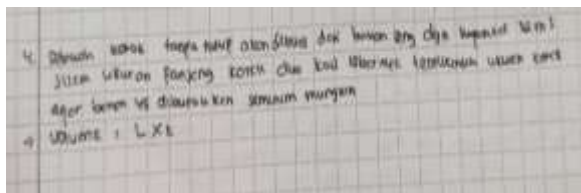 4. Sebuah kotak tanpa tutup akan dibuat dari bahan yang
Jika ukuran Panjang kotak dua kali lebarnya tentukanlah ukuran kotak
agar bahan yg dibutuhkan seminim mungkin
→ Volume : L x t